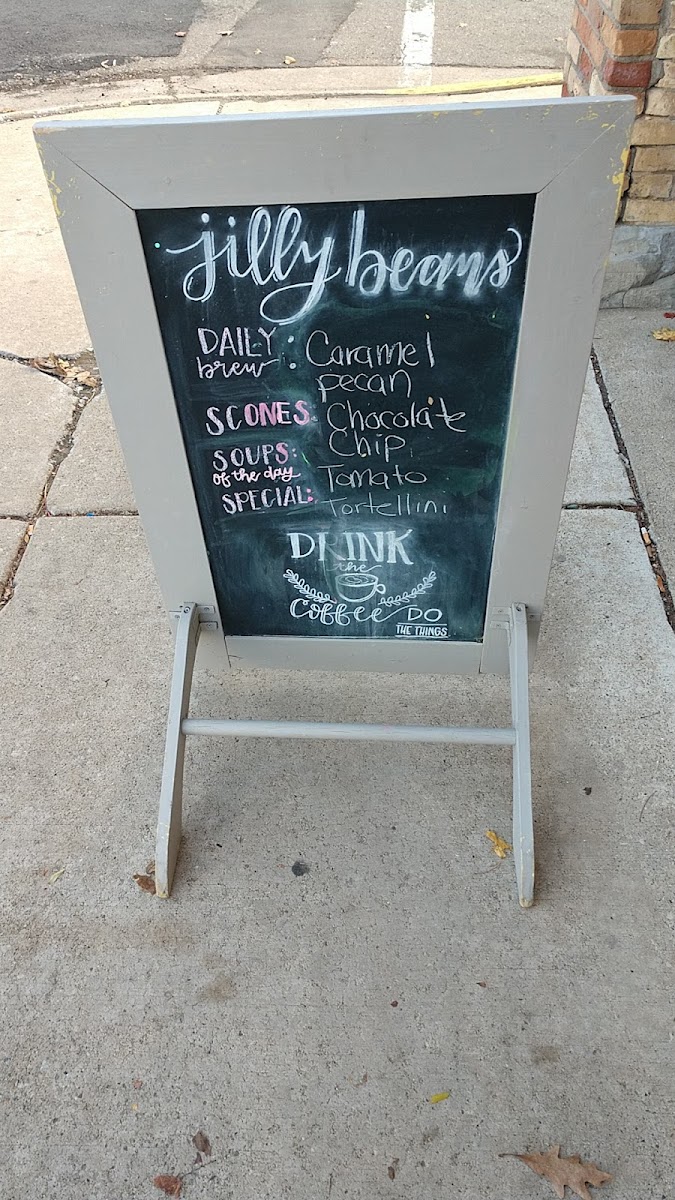 jilly beans
DAILY brew : Caramel
pecan
SCONES: Chocolate
Chip
SOUPS: of the day Tomato
SPECIAL: Tortellini
DRINK
the
Coffee DO
THE THINGS